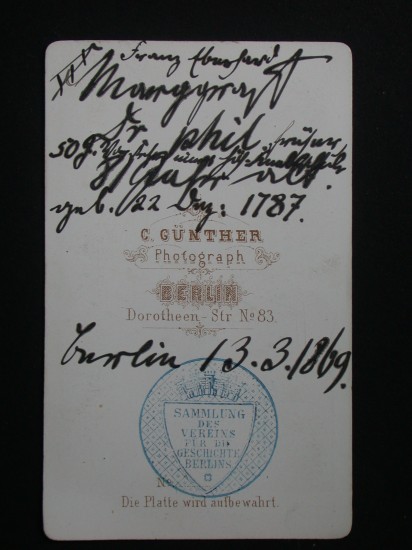 Franz Eberhard
Marggraff
Dr phil. früher
50 J.
81 Jahr alt.
geb. 22 Dez: 1787.
C. GÜNTHER
Photograph
BERLIN
Dorotheen-Str No 83.
Berlin 13.3.1869.
SAMMLUNG
DES
VEREINS
FÜR DIE
GESCHICHTE
BERLINS
No.
Die Platte wird aufbewahrt.